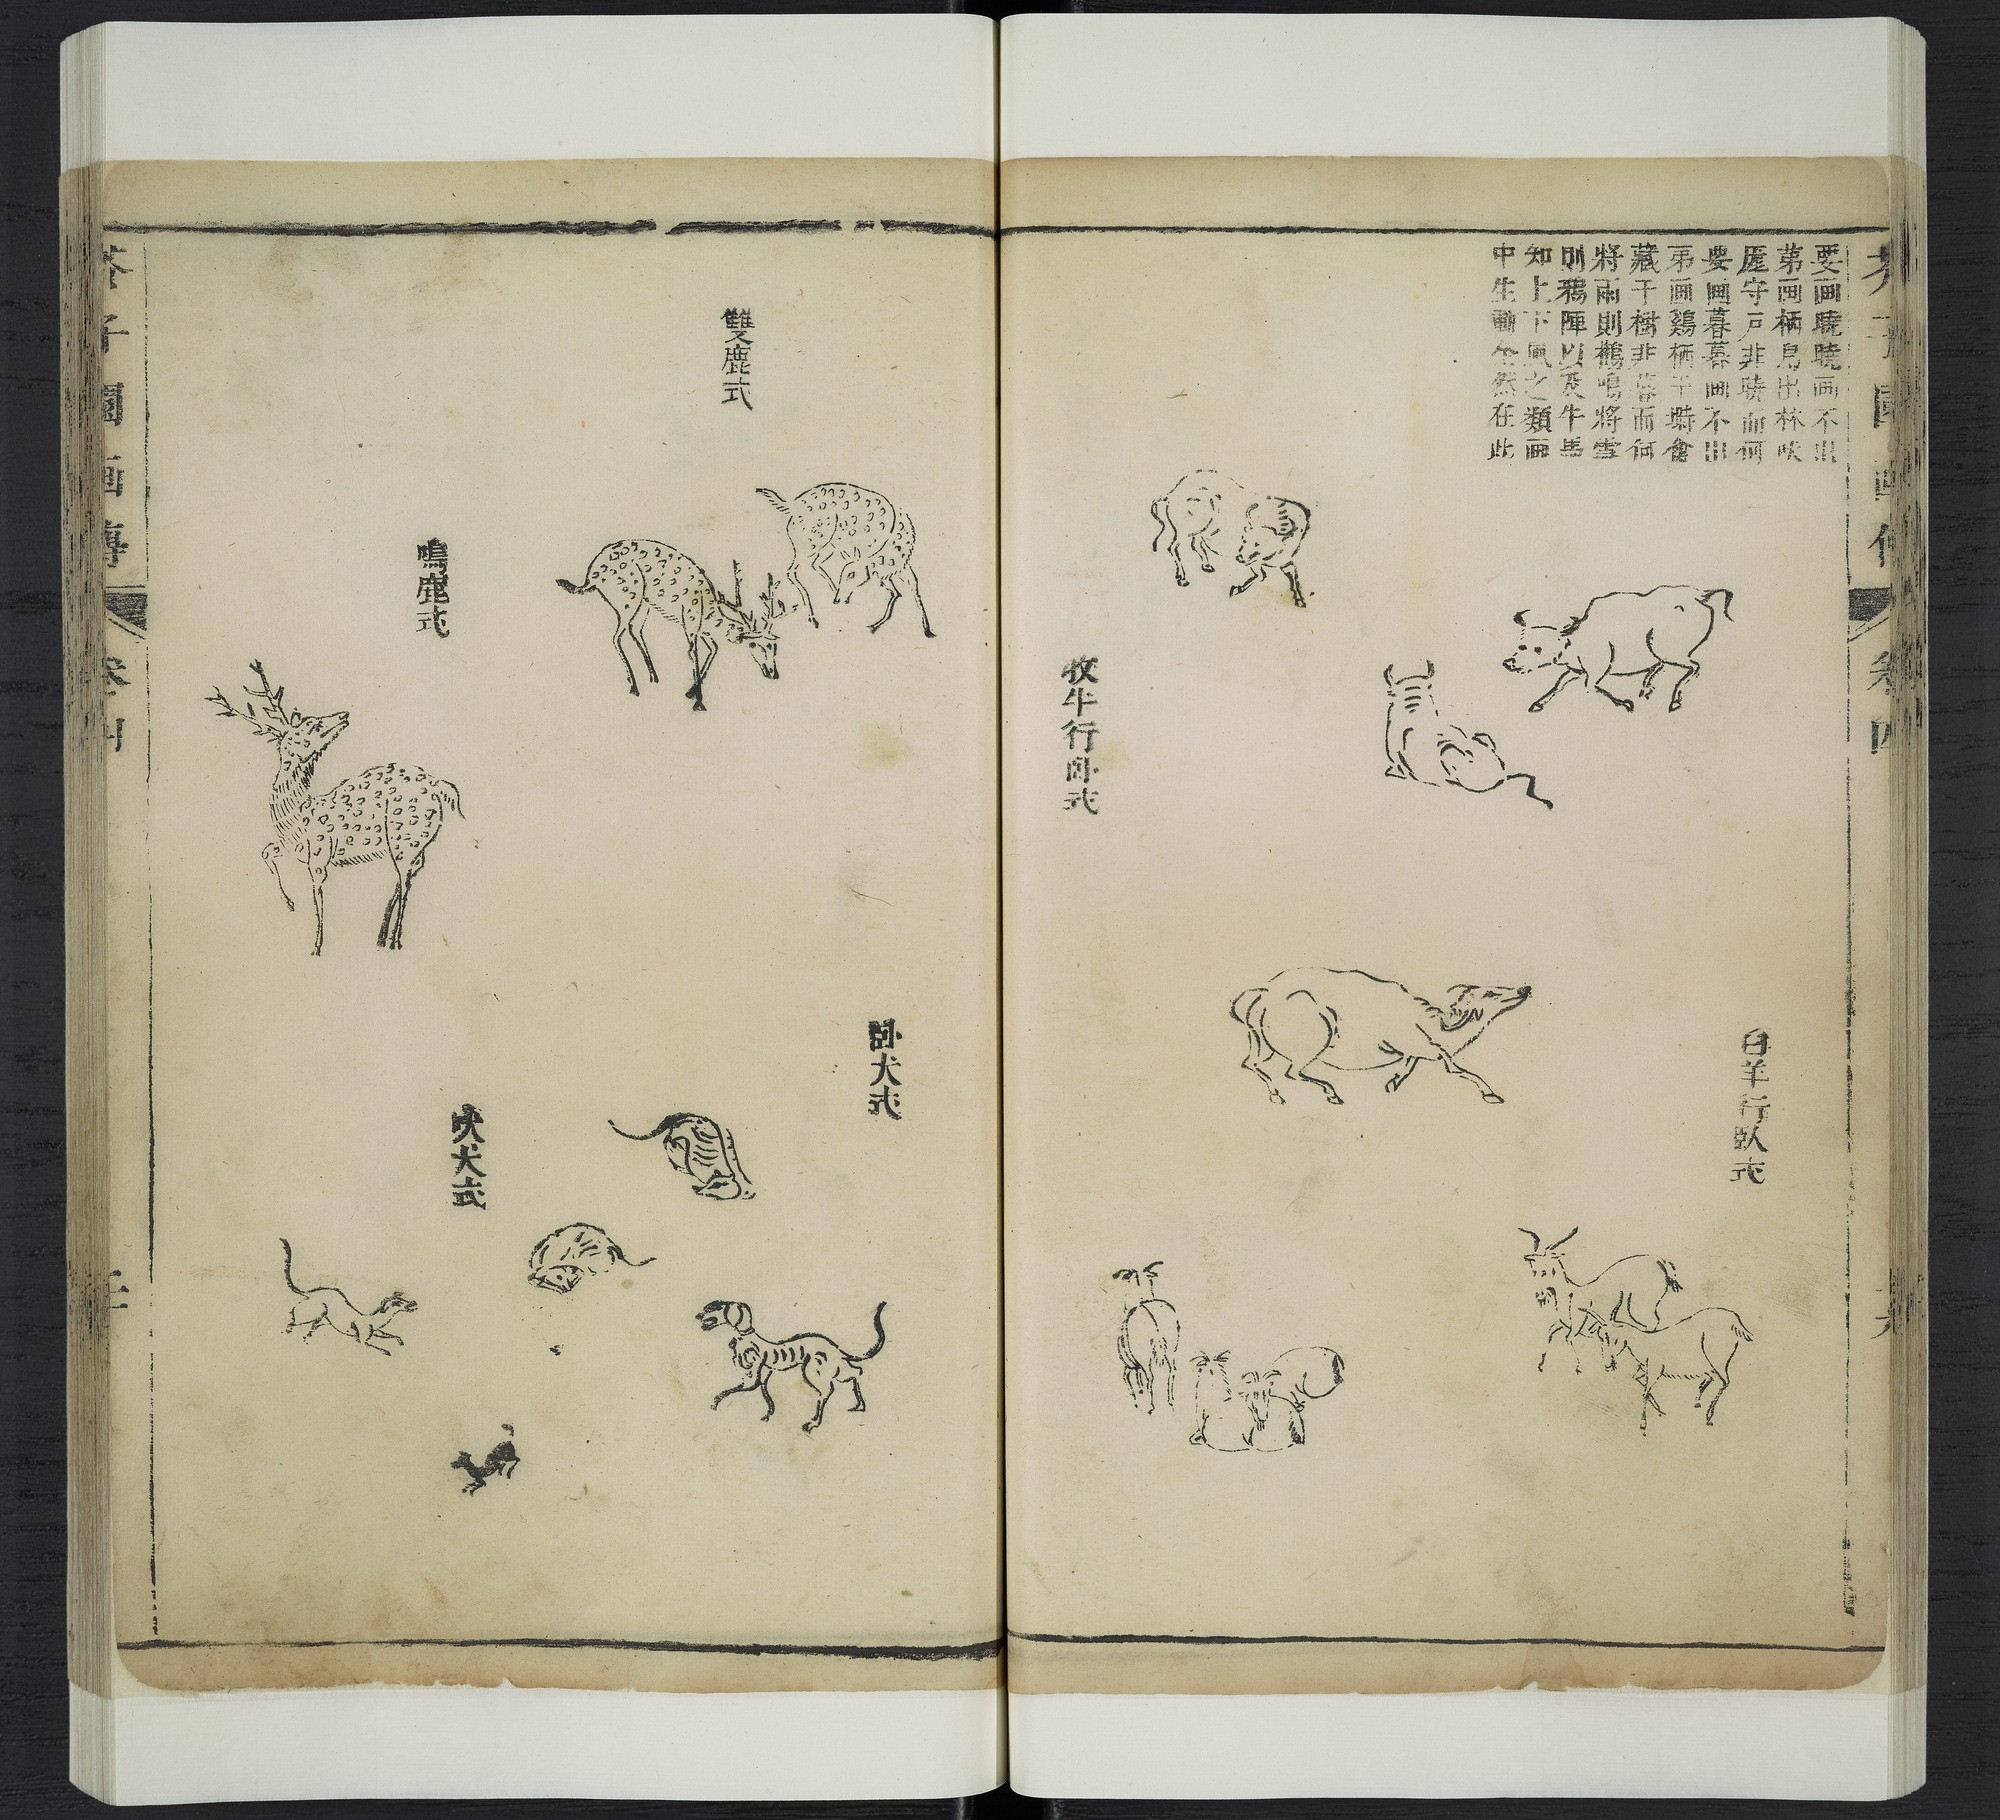 要画曉曉画不出
苐画栖鳥出林吠
厖守戸非曉而何
要画暮暮画不出
苐画鷄栖于塒禽
藏于樹非暮而何
將雨則鸛鳴將雪
則鴉陣以及牛馬
知上下風之類画
中生動全然在此
牧牛行卧式
白羊行臥式
雙鹿式
鳴鹿式
犬式
吠犬式
芥子園画傳
卷四
芥子園画傳
卷四